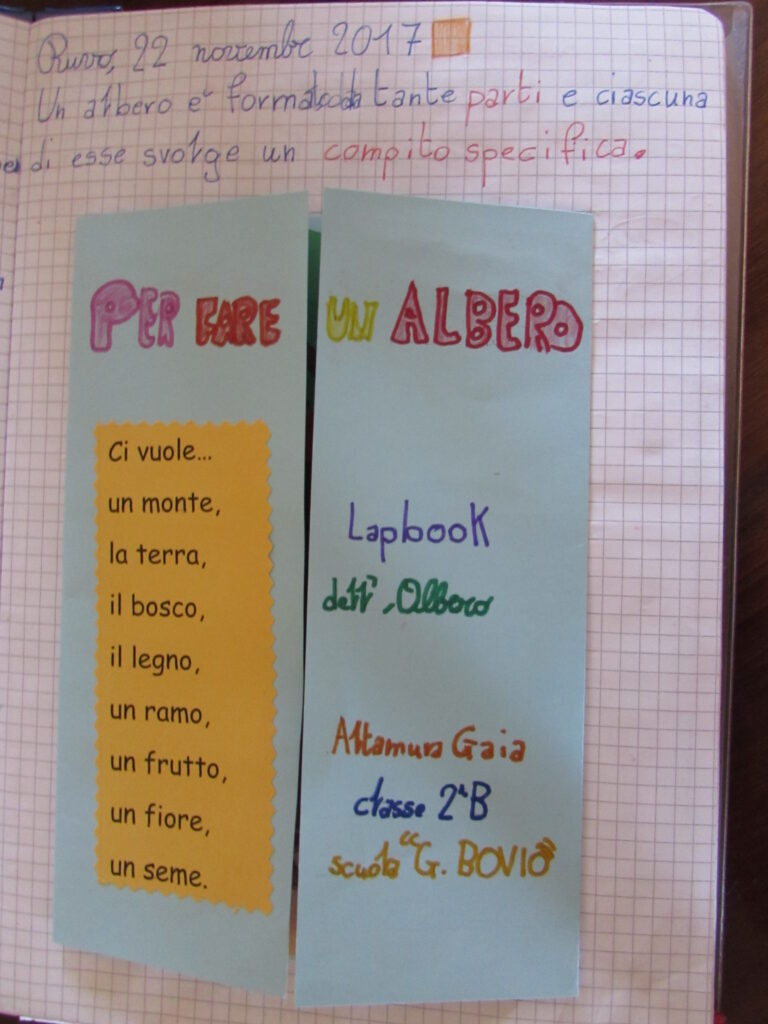 Ruvo, 22 novembre 2017
Un albero e' formato da tante parti e ciascuna
di esse svolge un compito specifica.
PER FARE UN ALBERO
Ci vuole...
un monte,
la terra,
il bosco,
il legno,
un ramo,
un frutto,
un fiore,
un seme.
Lapbook
dell' Albero
Altamura Gaia
classe 2ªB
scuola "G. BOVIO"